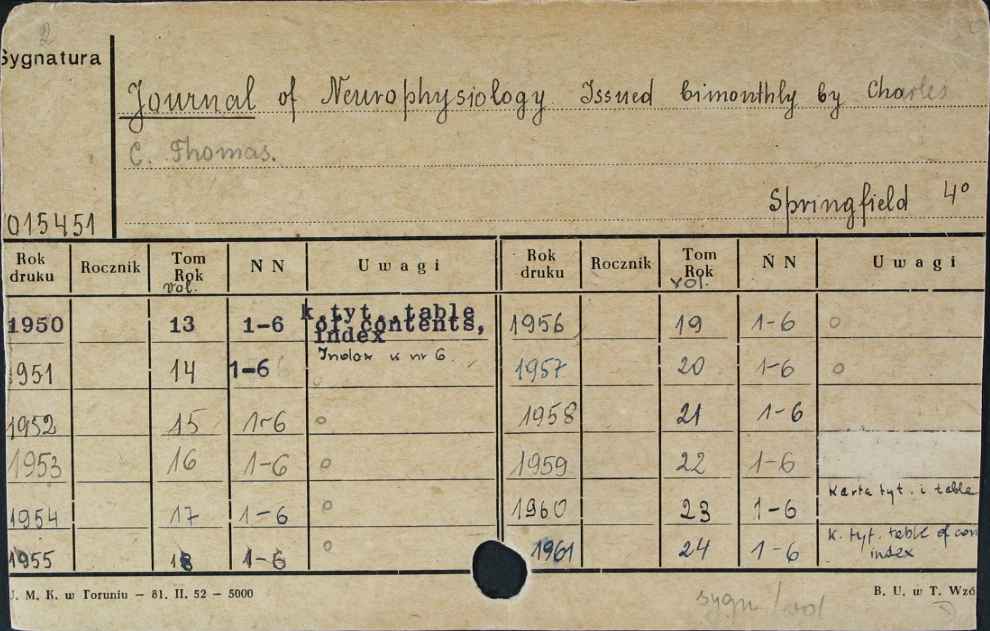 2
Sygnatura
Journal of Neurophysiology Issued bimonthly by Charles
C. Thomas.
Springfield 4°
015451
Rok druku Rocznik Tom Rok vol. N N Uwagi Rok druku Rocznik Tom Rok vol. N N Uwagi
1950 13 1-6 k.tyt., table of contents, index 1956 19 1-6 o
1951 14 1-6 Index w nr 6. 1957 20 1-6 o
1952 15 1-6 o 1958 21 1-6
1953 16 1-6 o 1959 22 1-6
1954 17 1-6 o 1960 23 1-6 Karta tyt. i table
1955 18 1-6 o 1961 24 1-6 k. tyt. table of con index
U. M. K. w Toruniu — 81. II. 52 — 5000
sygn/vol
B. U. w T. Wzó